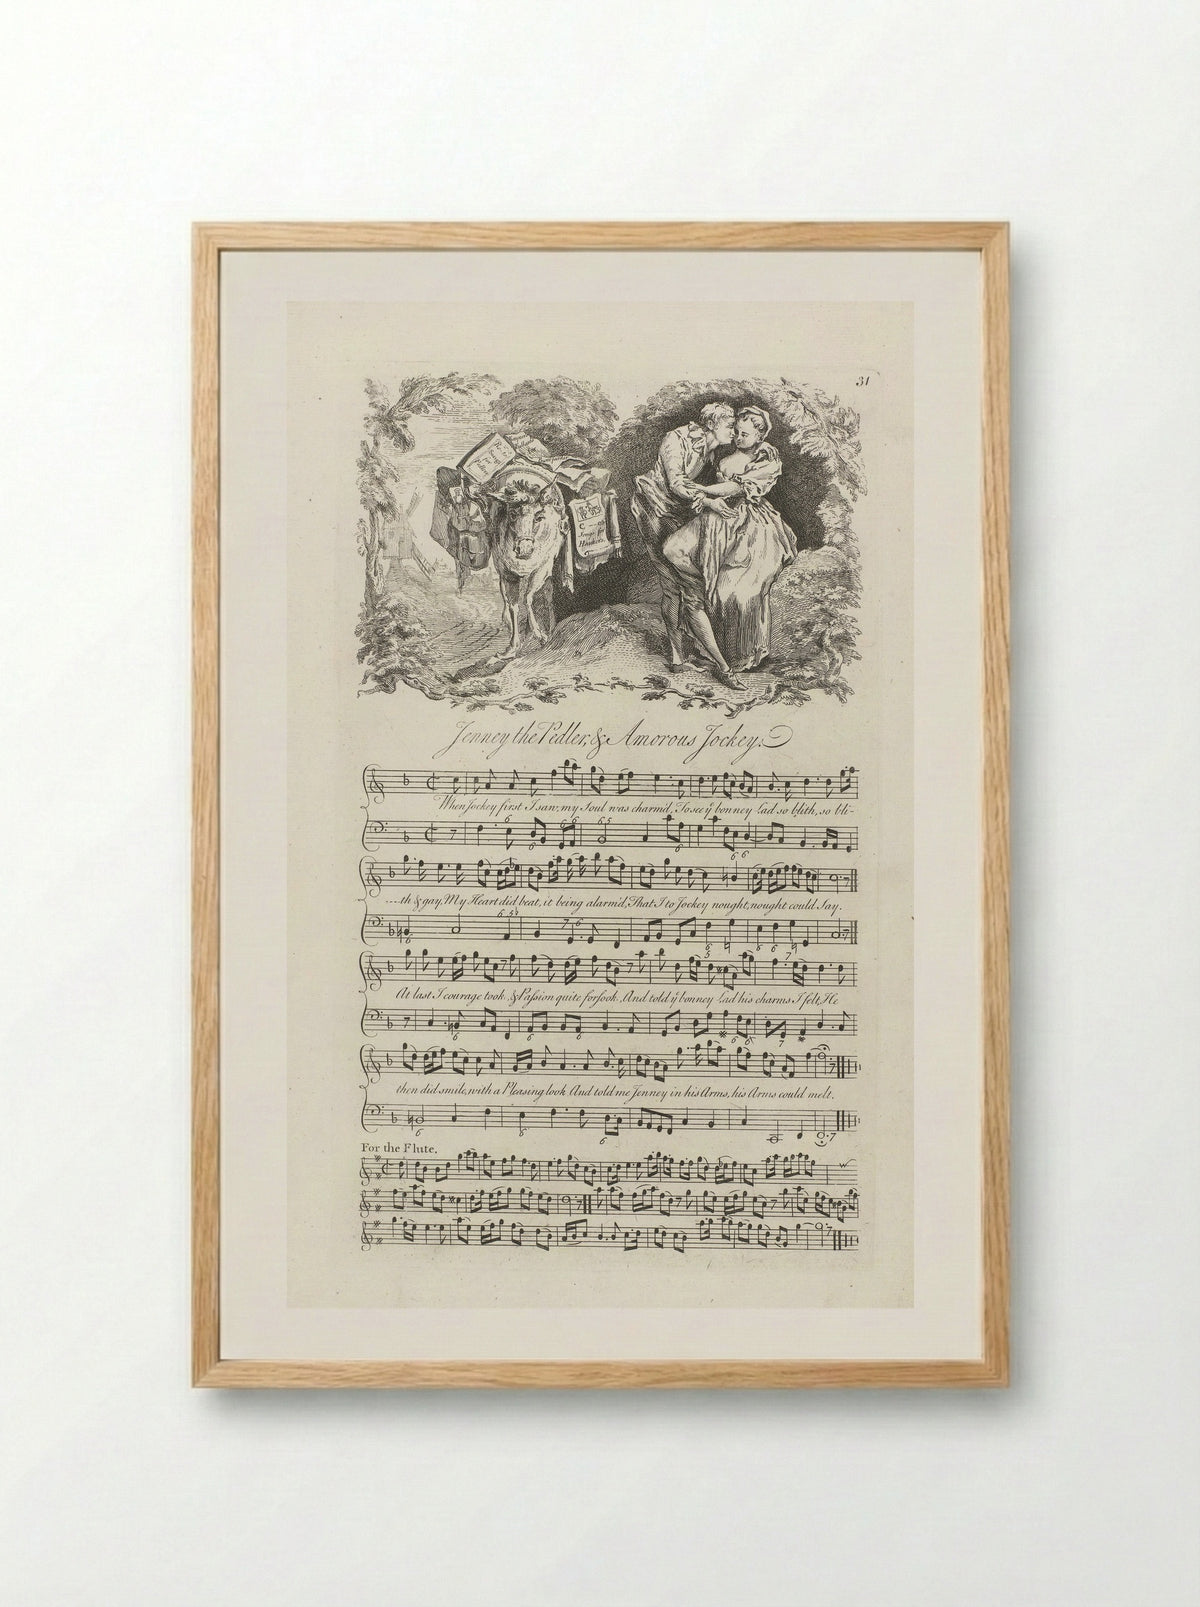 31
Jenney the Pedler, & Amorous Jockey.
When Jockey first I saw, my Soul was charm'd, To see yͤ bonney Lad so blith, so bli-
----th & gay, My Heart did beat, it being alarm'd, That I to Jockey nought, nought could Say.
At last I courage took & Paſsion quite forſook, And told yͤ bonney Lad his charms I felt, He
then did smile, with a Pleasing look And told me Jenney in his Arms, his Arms could melt.
For the Flute.